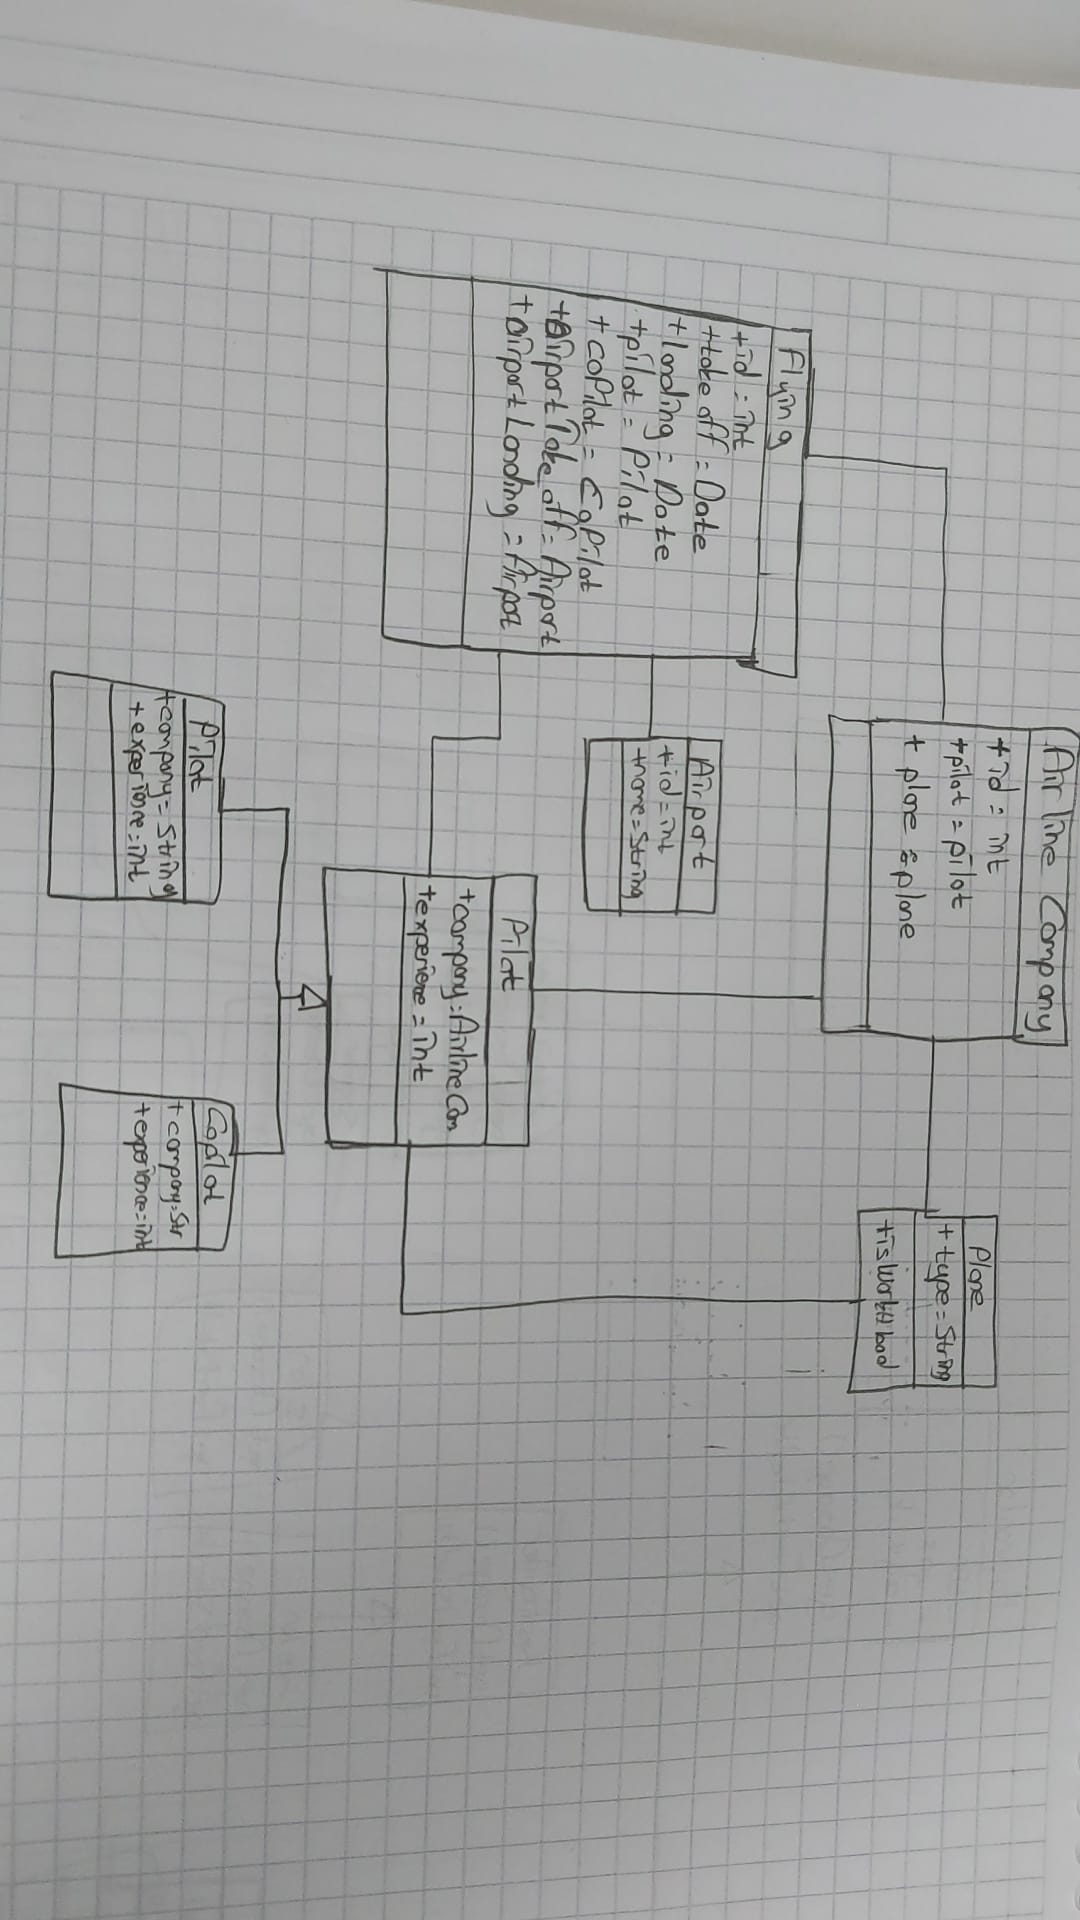 Airline Company
+id = int
+pilot = pilot
+ plane = plane
Plane
+ type = String
+isWork() bool
Flying
+id = int
+take off = Date
+landing = Date
+pilot = Pilot
+ coPilot = CoPilot
+airport Take off = Airport
+ airport Landing = Airport
Airport
+id = int
+name = String
Pilot
+company = Airline Com
+experiece = int
Pilot
+company = String
+ experience = int
Copilot
+ company = Str
+ experience = int